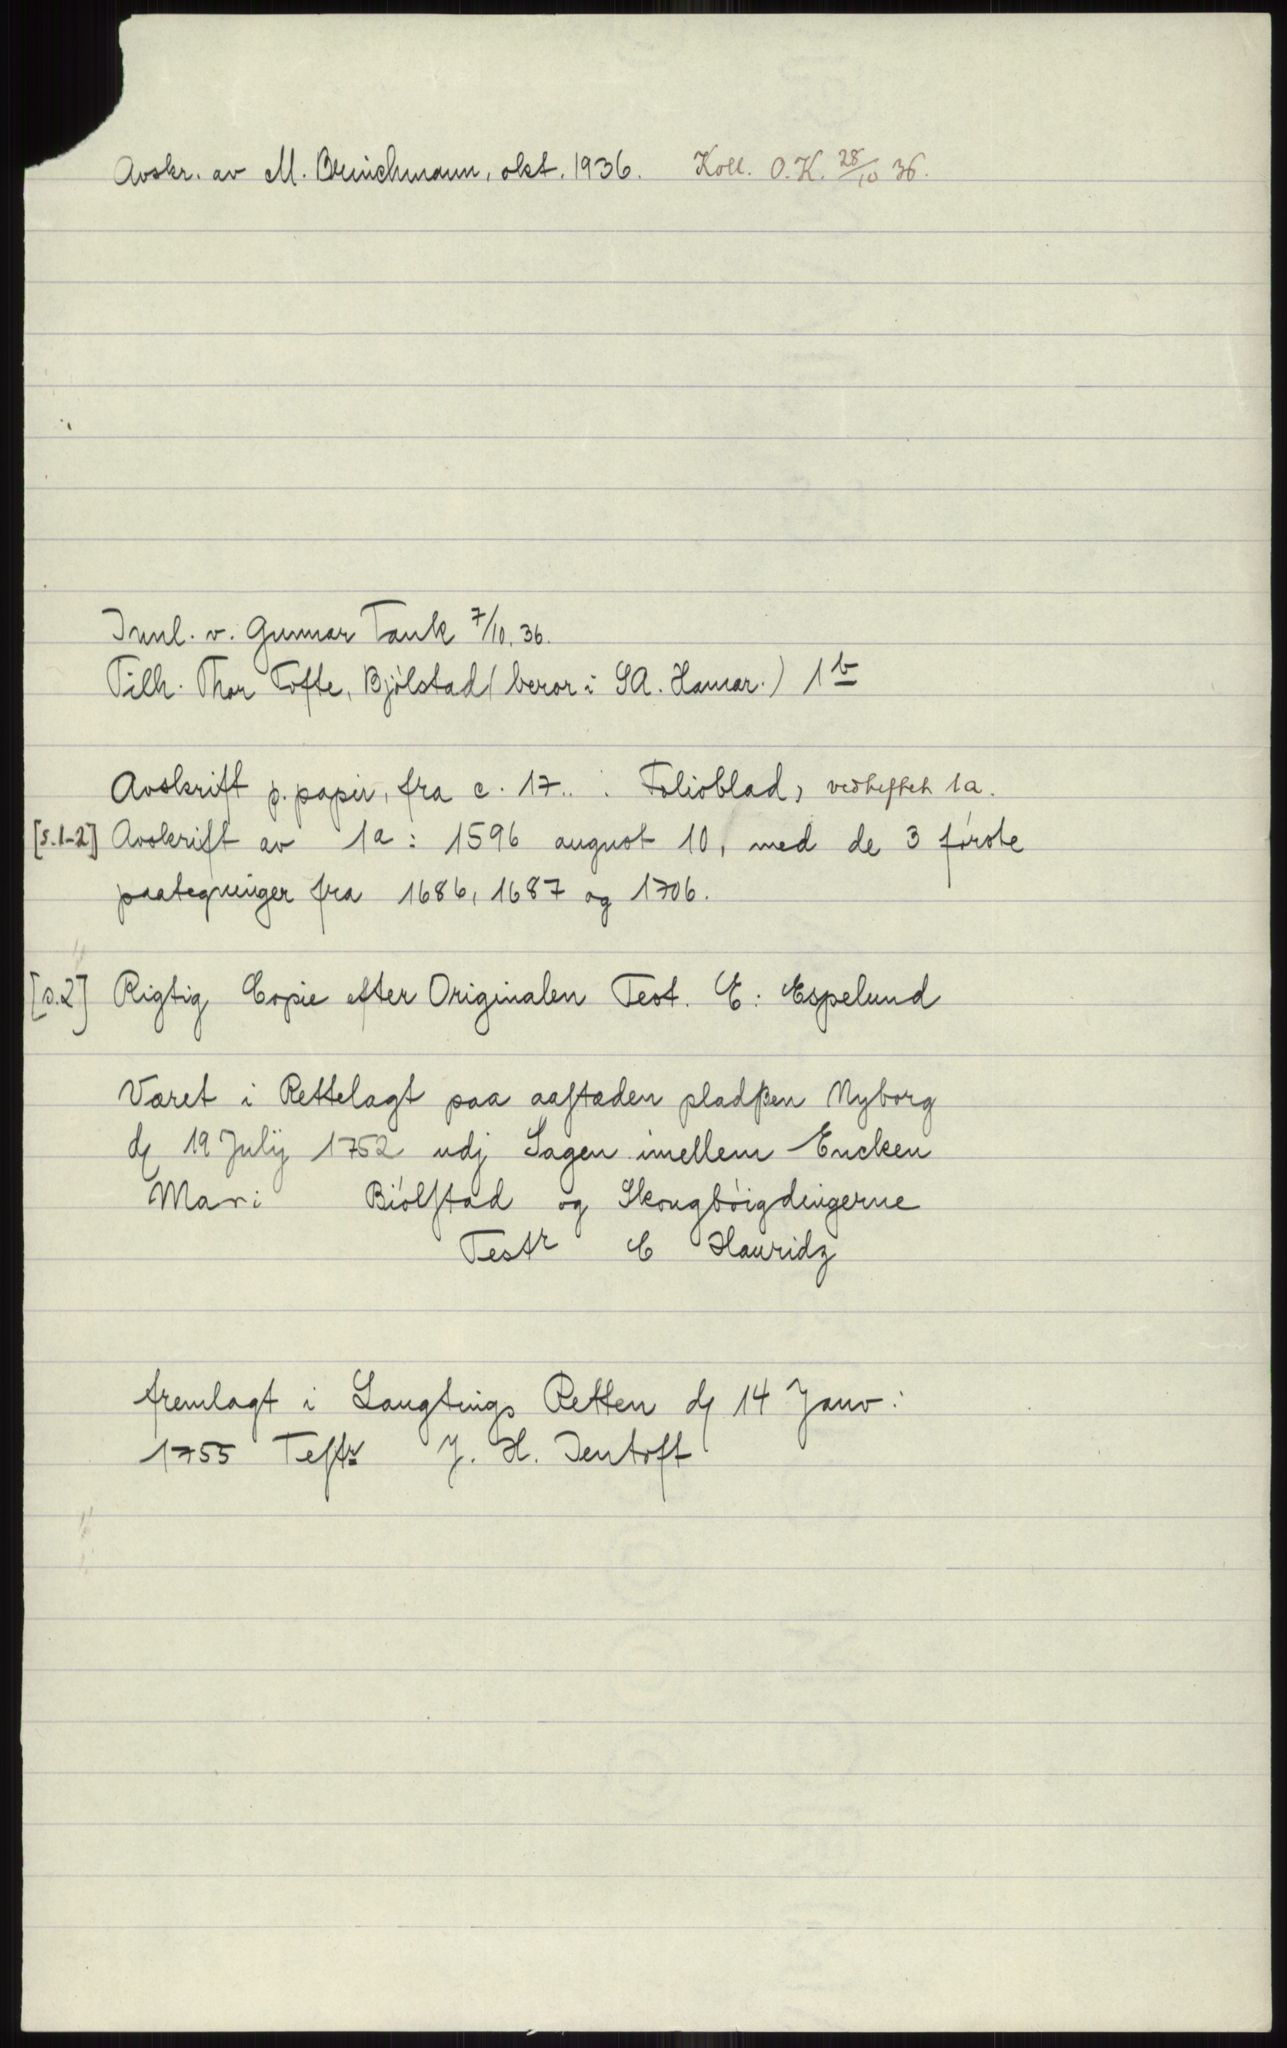 Avskr. av M. Brinchmann, okt. 1936. Koll. O.K. 28/10 36.
Innl. v. Gunnar Tank 7/10. 36.
Tilh. Thor Tofte, Bjølstad (beror i SA. Hamar.) 1b
Avskrift p. papir, fra c. 17.. . Folioblad, vedheftet 1a.
[s.1-2] Avskrift av 1a: 1596 august 10, med de 3 første
paategninger fra 1686, 1687 og 1706.
[s.2] Rigtig Copie efter Originalen Test. E: Espelund
Været i Rettelagt paa aaſtæden pladſsen Nyborg
dȷ 19 Julÿ 1752 udj Sagen imellem Encken
Mari Biólſtad og Skougbóigdingerne
Testr C Hauridz
fremlagt i Laugtings Retten dȷ 14 Janv:
1755 Teſtr J. H. Jentoft